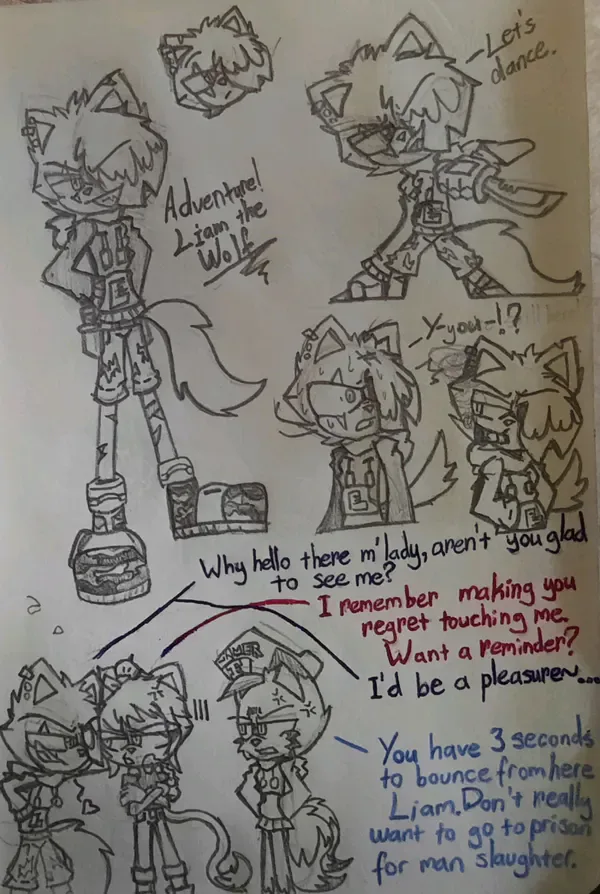 Let's
dance.
Adventure!
Liam the
Wolf
Y-you-!?
Why hello there m'lady, aren't you glad
to see me?
I remember making you
regret touching me.
Want a reminder?
I'd be a pleasure~...
GAMER
You have 3 seconds
to bounce from here
Liam. Don't really
want to go to prison
for man slaughter.